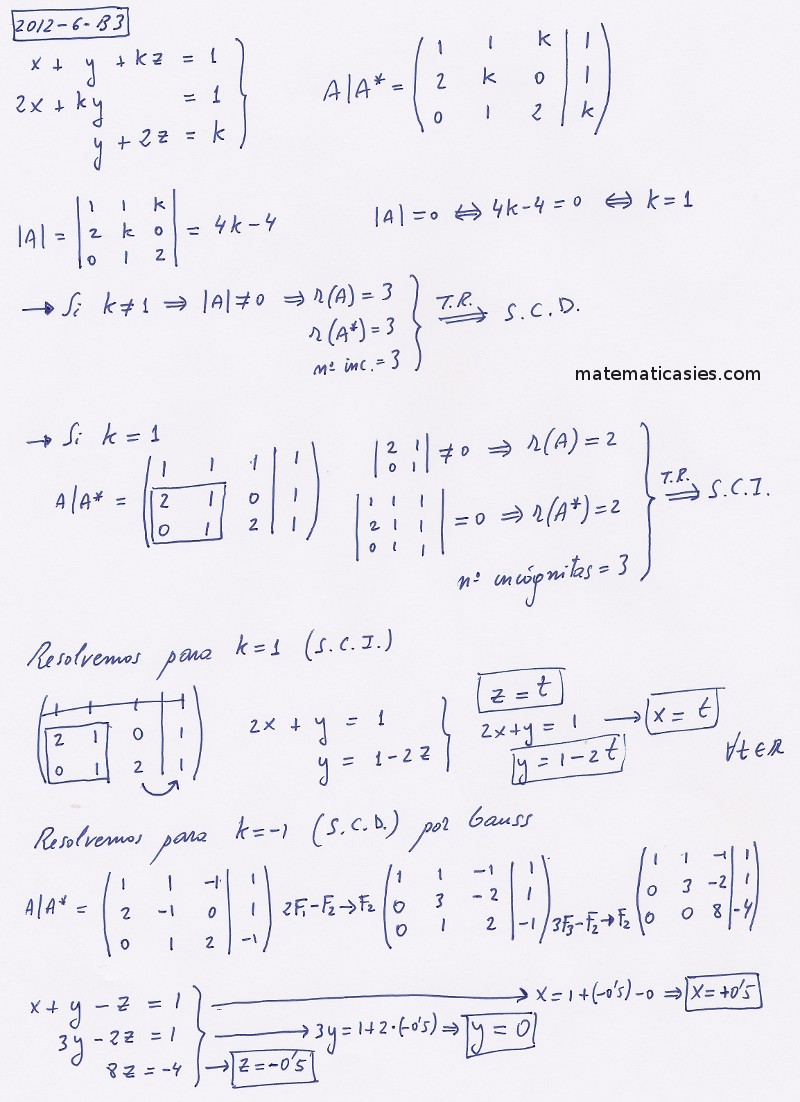 2012-6-B3
x + y + kz = 1
2x + ky = 1
y + 2z = k
A|A* = ( 1 1 k | 1
2 k 0 | 1
0 1 2 | k )
|A| = | 1 1 k
2 k 0
0 1 2 | = 4k-4
|A|=0 ⇔ 4k-4=0 ⇔ k=1
→ Si k≠1 ⇒ |A|≠0 ⇒ r(A)=3
r(A*)=3
nº inc.=3 } T.R. ⇒ S.C.D.
matematicasies.com
→ Si k=1
A|A* = ( 1 1 1 | 1
2 1 0 | 1
0 1 2 | 1 )
| 2 1
0 1 | ≠0 ⇒ r(A)=2
| 1 1 1
2 1 1
0 1 1 | =0 ⇒ r(A*)=2
nº incógnitas=3 } T.R. ⇒ S.C.I.
Resolvemos para k=1 (S.C.I.)
2 1 0 | 1
0 1 2 | 1
2x + y = 1
y = 1-2z
z = t
2x+y = 1 → x = t
y = 1-2t
∀t∈ℝ
Resolvemos para k=-1 (S.C.D.) por Gauss
A|A* = ( 1 1 -1 | 1
2 -1 0 | 1
0 1 2 | -1 )
2F₁-F₂→F₂
( 1 1 -1 | 1
0 3 -2 | 1
0 1 2 | -1 )
3F₃-F₂→F₂
( 1 1 -1 | 1
0 3 -2 | 1
0 0 8 | -4 )
x + y - z = 1 → x=1+(-0'5)-0 ⇒ x=+0'5
3y-2z=1 → 3y=1+2·(-0'5) ⇒ y=0
8z=-4 → z=-0'5